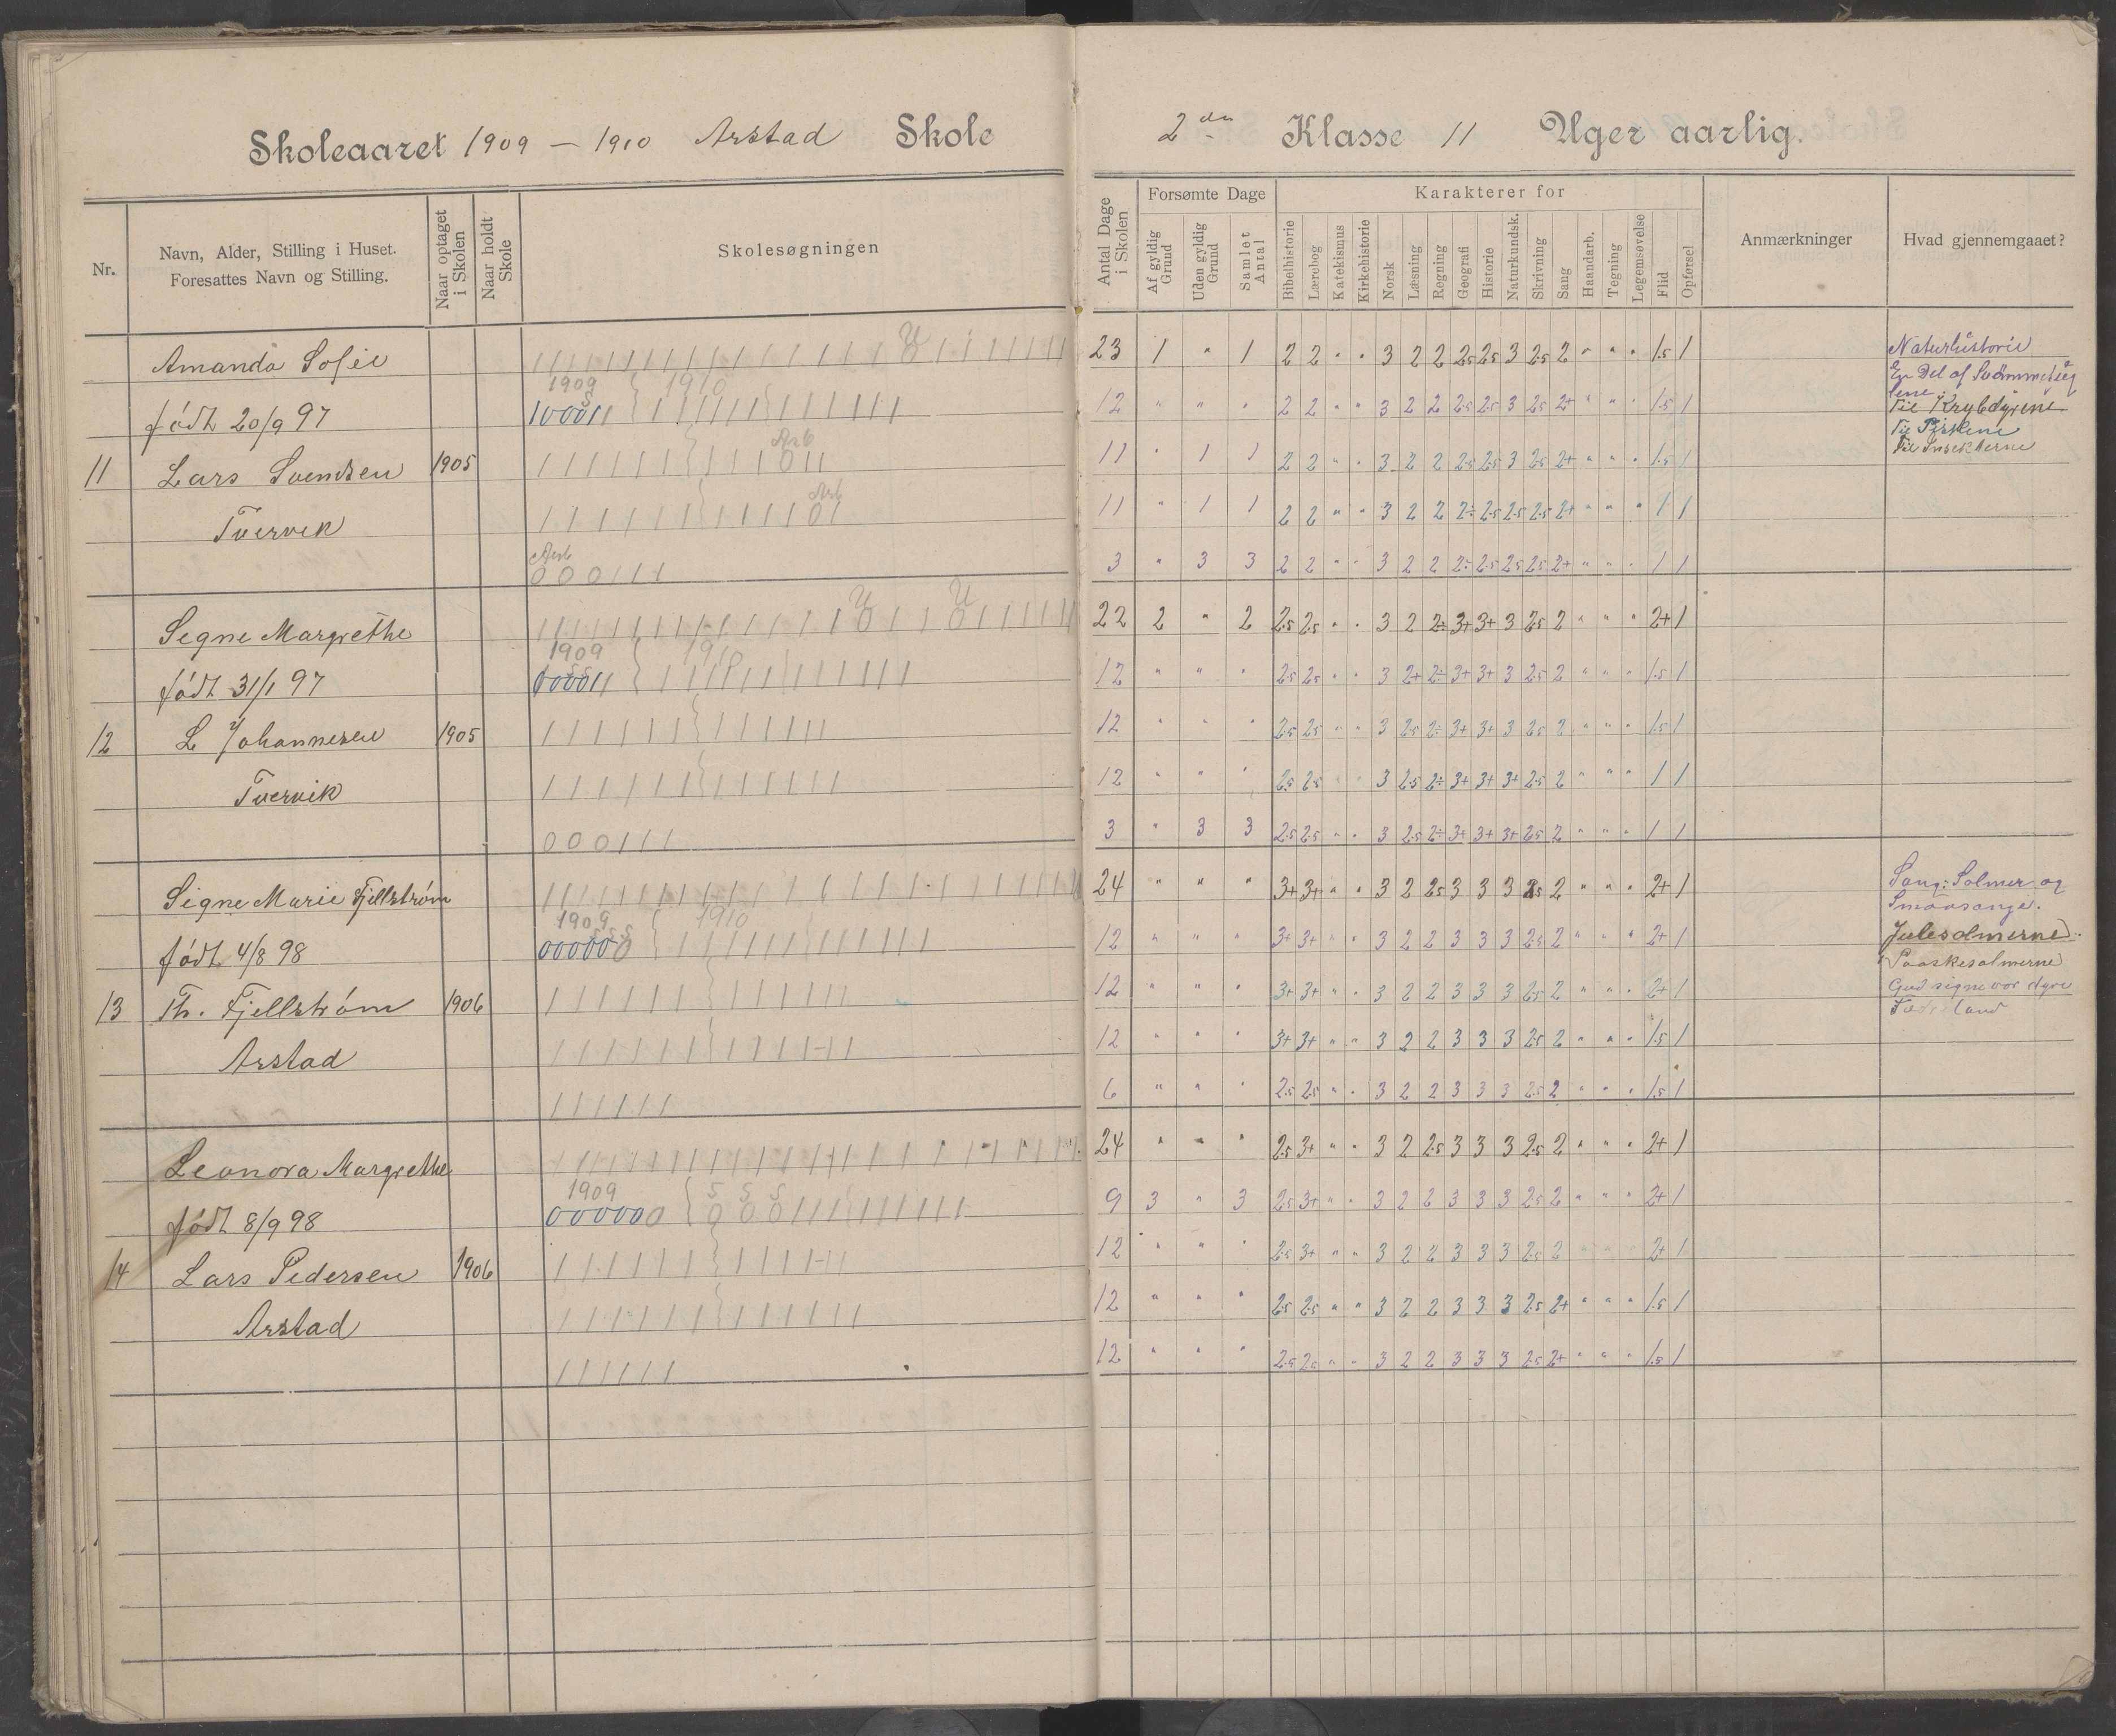 Skoleaaret 1909 – 1910 Arstad Skole
2den Klasse 11 Uger aarlig.
Nr.
Navn, Alder, Stilling i Huset.
Foresattes Navn og Stilling.
Naar optaget i Skolen
Naar holdt Skole
Skolesøgningen
Antal Dage i Skolen
Forsømte Dage
Af gyldig Grund
Uden gyldig Grund
Samlet Antal
Karakterer for
Bibelhistorie
Lærebog
Katekismus
Kirkehistorie
Norsk
Læsning
Regning
Geografi
Historie
Naturkundsk.
Skrivning
Sang
Haandarb.
Tegning
Legemsøvelse
Flid
Opførsel
Anmærkninger
Hvad gjennemgaaet?
Amanda Sofie
23 1 " 1 2 2 " " 3 2 2 2.5 2.5 3 2.5 2 " " " 1.5 1
født 20/9 97
1909 1910
12 " " " 2 2 " " 3 2 2 2.5 2.5 3 2.5 2+ " " " 1.5 1
11 Lars Svendsen 1905
Arb
11 " 1 1 2 2 " " 3 2 2 2.5 2.5 3 2.5 2+ " " " 1.5 1
Tvervik
Arb
11 " 1 1 2 2 " " 3 2 2 2÷ 2.5 2.5 2.5 2+ " " " 1 1
Arb
000111
3 " 3 3 2 2 " " 3 2 2 2÷ 2.5 2.5 2.5 2+ " " " 1 1
Naturhistorie
En Del af
Til Krybdyrene
Til Fiskene
Til Insekterne
Segne Margrethe
22 2 " 2 2.5 2.5 " " 3 2 2÷ 3+ 3+ 3 2.5 2 " " " 2+ 1
født 31/1 97
1909 1910
12 " " " 2.5 2.5 " " 3 2+ 2÷ 3+ 3+ 3 2.5 2 " " " 1.5 1
12 L Johannesen 1905
12 " " " 2.5 2.5 " " 3 2.5 2÷ 3+ 3+ 3 2.5 2 " " " 1.5 1
Tvervik
12 " " " 2.5 2.5 " " 3 2.5 2÷ 3+ 3+ 3+ 2.5 2 " " " 1 1
000111
3 " 3 3 2.5 2.5 " " 3 2.5 2÷ 3+ 3+ 3+ 2.5 2 " " " 1 1
Signe Marie Fjellstrøm
24 " " " 3+ 3+ " " 3 2 2.5 3 3 3 2.5 2 " " " 2+ 1
født 4/8 98
1909 1910
12 " " " 3+ 3+ " " 3 2 2 3 3 3 2.5 2 " " " 2+ 1
13 Th. Fjellstrøm 1906
12 " " " 3+ 3+ " " 3 2 2 3 3 3 2.5 2 " " " 2+ 1
Arstad
12 " " " 3+ 3+ " " 3 2 2 3 3 3 2.5 2 " " " 1.5 1
111111
6 " " " 2.5 2.5 " " 3 2 2 3 3 3 2.5 2 " " " 1.5 1
Sang: Salmer og
Smaasange.
Julesalmerne
Paaskesalmerne
Gud signe vor dyre
Fædreland
Leonora Margrethe
24 " " " 2.5 3+ " " 3 2 2.5 3 3 3 2.5 2 " " " 2+ 1
født 8/9 98
1909
9 3 " 3 2.5 3+ " " 3 2 2 3 3 3 2.5 2 " " " 2+ 1
14 Lars Pedersen 1906
12 " " " 2.5 3+ " " 3 2 2 3 3 3 2.5 2 2+ 1
Arstad
12 " " " 2.5 2.5 " " 3 2 2 3 3 3 2.5 2+ " " " 1.5 1
111111
12 " " " 2.5 2.5 " " 3 2 2 3 3 3 2.5 2+ " " " 1.5 1